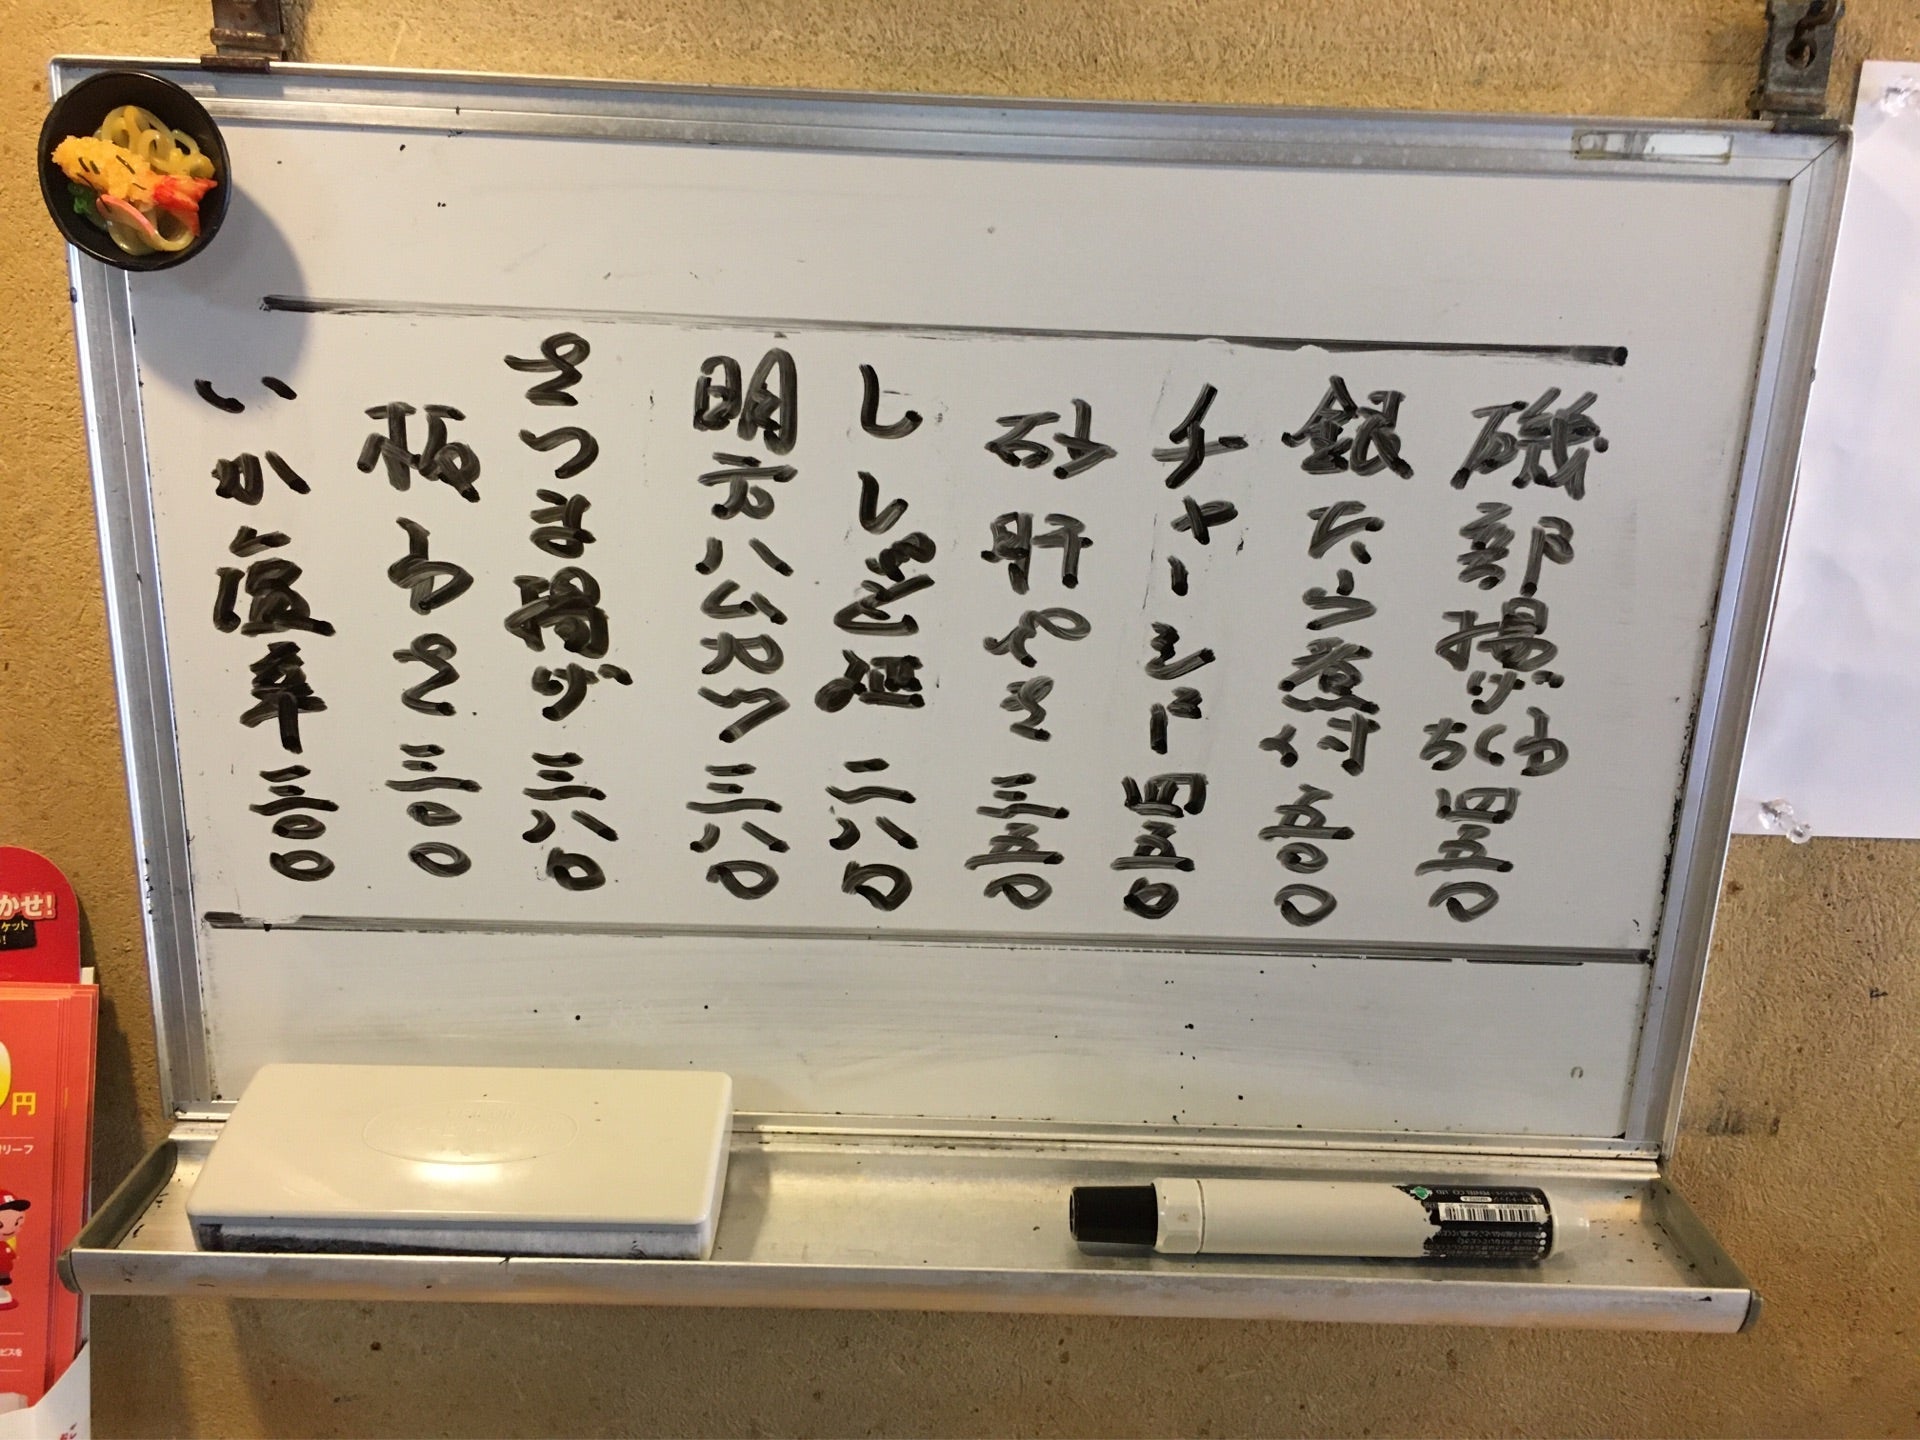 磯部揚げちくわ 四五〇
銀だら煮付 五〇〇
チャーシュー 四五〇
砂肝やさ 三五〇
しし 二八〇
明太 三八〇
さつま揚げ 三八〇
板わさ 三〇〇
いか塩辛 三〇〇
かせ!
円
リーフ
ビスを